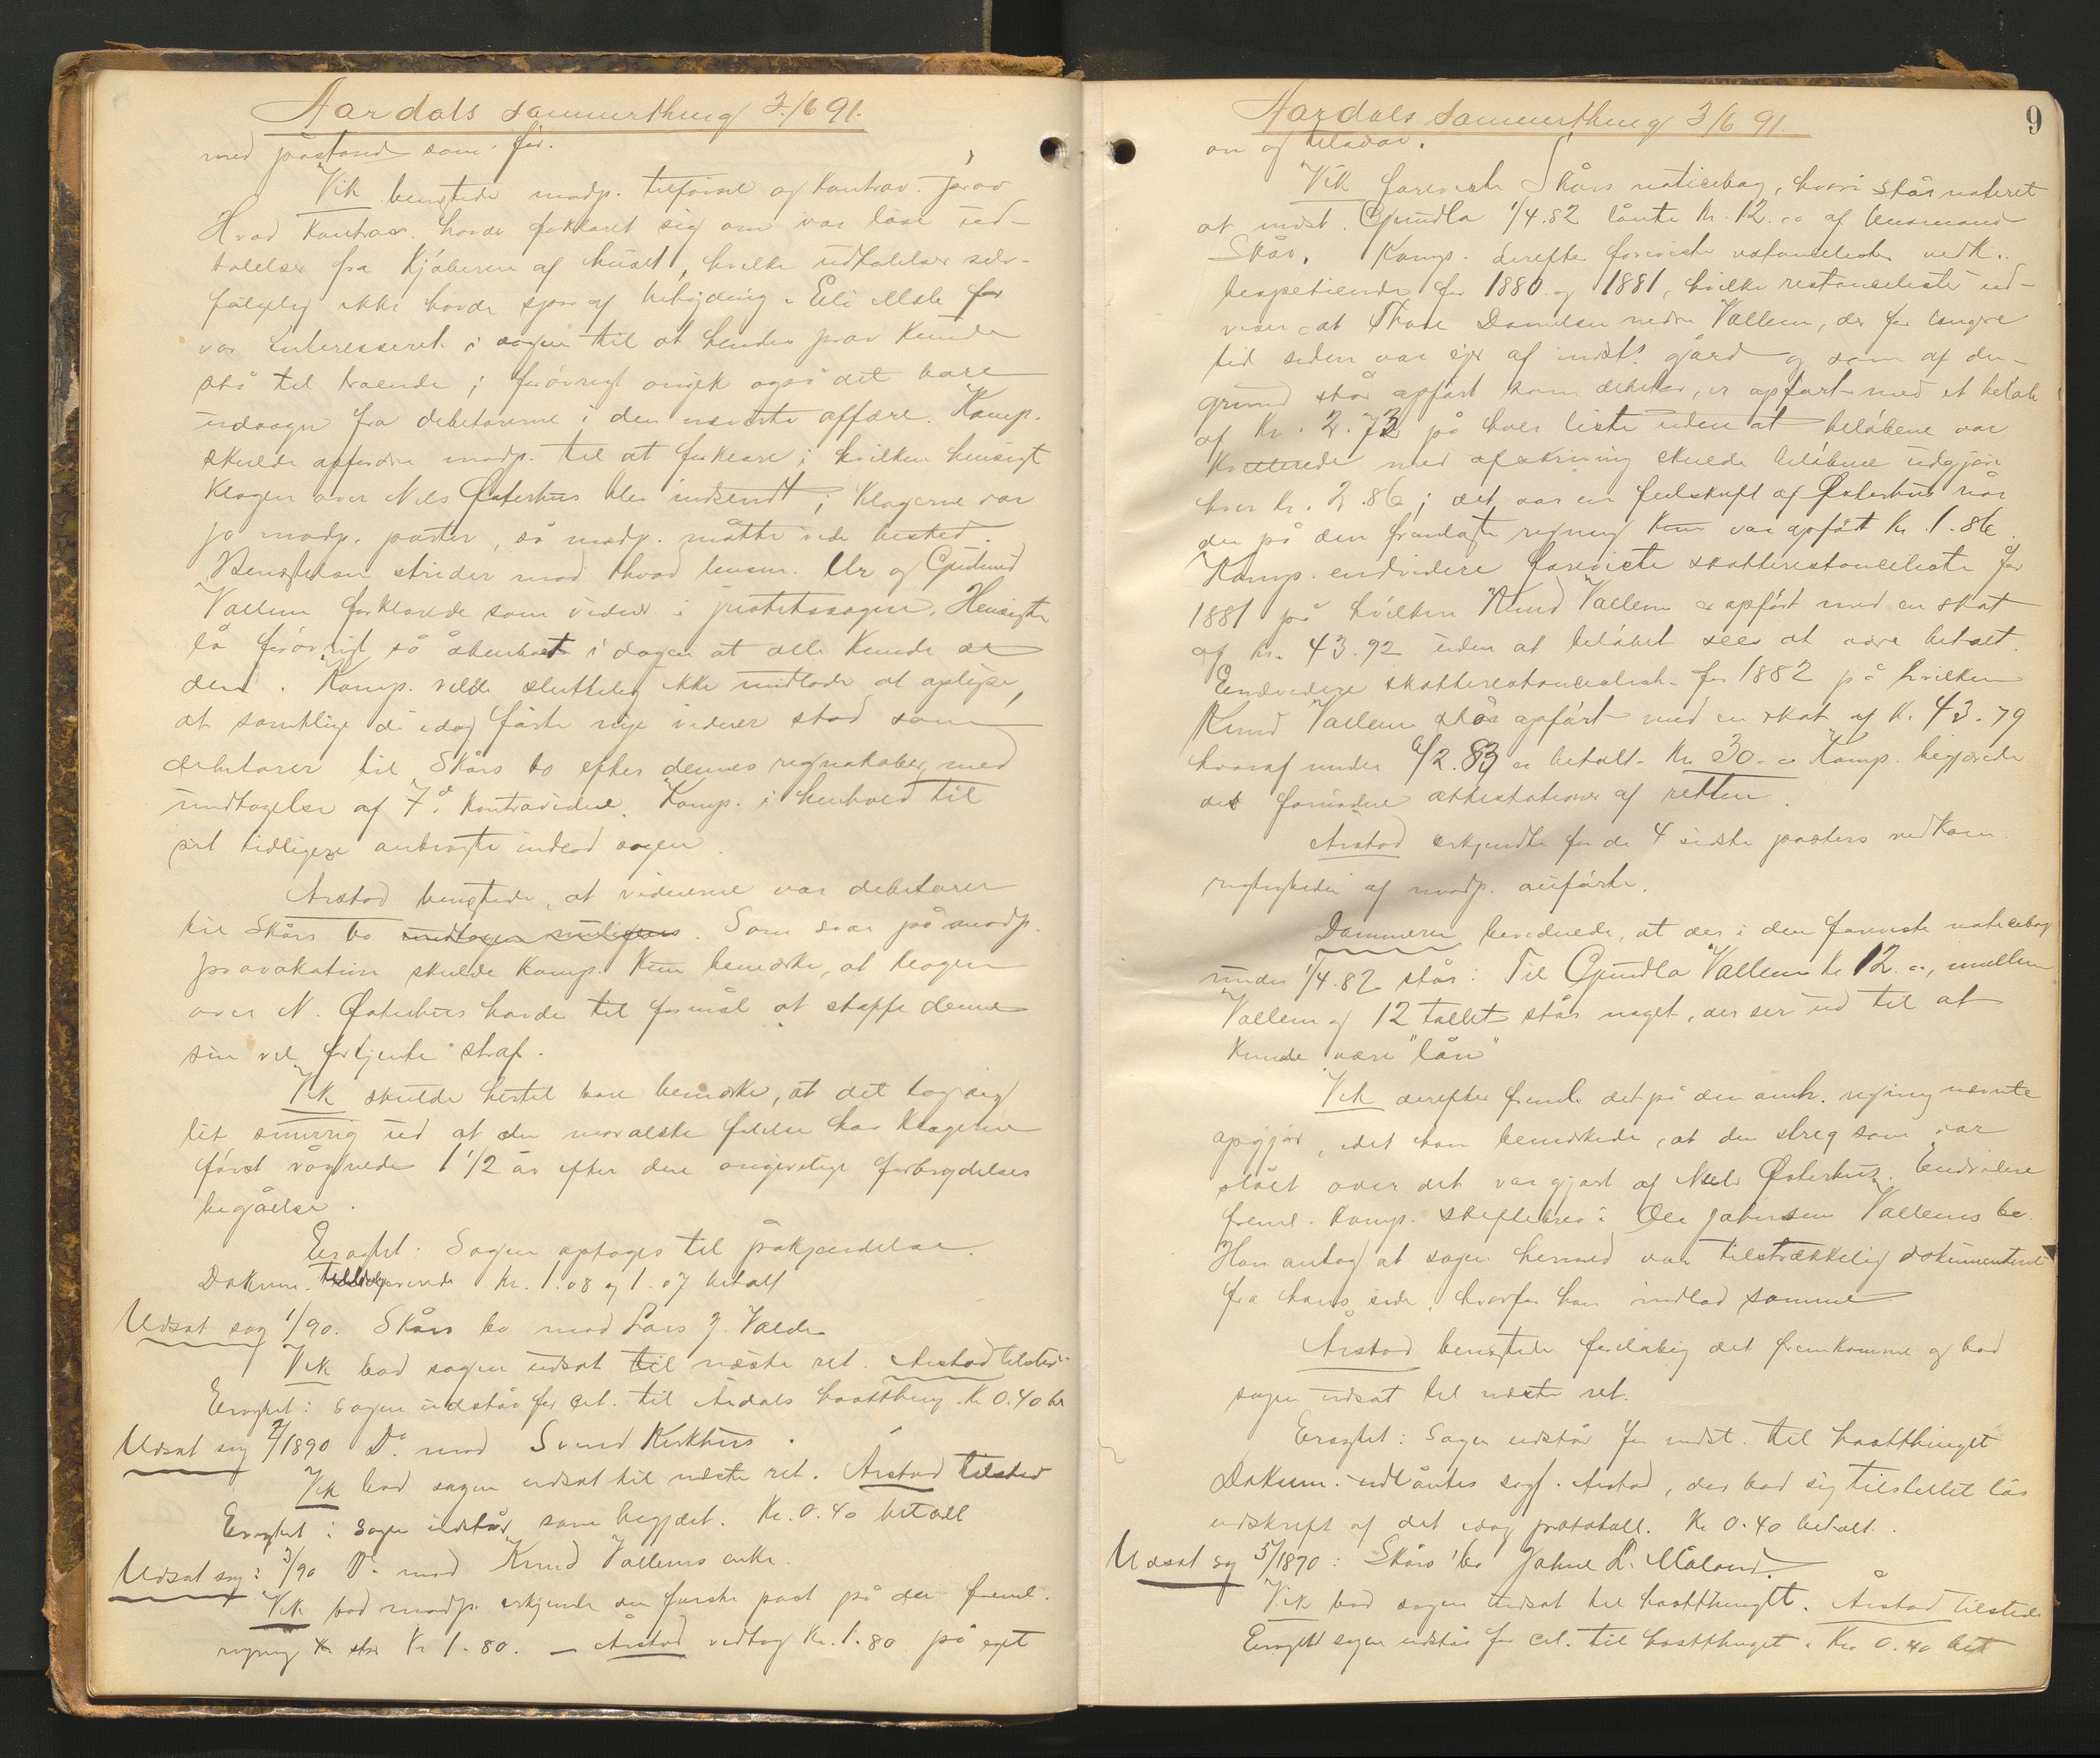 Aardals sommerthing 3/6 91.
med påstand som før.
Vik benegtede modp. tilførsel og kontrav. prov
Hvad kontrav. havde forklaret sig om var løse ud-
talelser fra kjøberen af huset, hvilke udtalelser selv-
følgelig ikke havde spor af betydning. Eli
var interesseret i sagen til at hendes prov kunde
stå til troende; forøvrigt angik også det bare
udsagn fra debitorerne i den nævnte affære. Komp.
skulde opfordre modp. til at forklare i hvilken hensigt
klagen over Nils Østerhus blev indsendt; klagerne var
jo modp. parter, så modp. måtte vide besked.
Benegtelsen strider mod hvad lensm. og Gudmund
Vallem forklarede som vidner i justitssagen. Hensigten
lå forøvrigt så åbenbart i dagen at alle kunde se
den. Komp. vilde sluttelig ikke undlade at oplyse,
at samtlige de idag førte nye vidner stod som
debitorer til Skårs bo efter dennes regnskaber, med
undtagelse af 7de kontravidne. Komp. i henhold til
sit tidligere anbragte indlod sagen.
Årstad benegtede, at vidnerne var debitorer
til Skårs bo. Som svar på modp.
provokation skulde komp. kun bemærke, at klagen
over N. Østerhus havde til formål at skaffe denne
sin vel fortjente straf.
Vik skulde hertil bare bemærke, at det tog sig
lit snurrig ud at den moralske følelse hos klagerne
først vågnede 1 1/2 år efter den angivelige forbrydelses
begåelse.
Eragtet: Sagen optages til påkjendelse.
Dokum. kr. 1.08 og 1.07 betalt
Udsat sag 1/90. Skårs bo mod Lars J. Valde
Vik bad sagen udsat til næste ret. Årstad tilsted.
Eragtet: Sagen udstår for cit. til Årdals høstthing. Kr 0.40 bt
Udsat sag 2/1890 Do mod Svend Kirkhus.
Vik bad sagen udsat til næste ret. Årstad tilsted
Eragtet: Sagen udstår som begjæret. Kr. 0.40 betalt
Udsat sag: 3/90 Do mod Knud Vallems enke.
Vik bad modp. erkjende den første post på den freml.
regning stor Kr 1.80. – Årstad vedtog Kr. 1.80 på eget
Aardals sommerthing 3/6 91.
9
an og tilsvar.
Vik foreviste Skårs noticebog, hvori står noteret
at indst. Gundla 1/4.82 lånte Kr. 12.00 af lensmand
Skår. Komp. derefter foreviste restancelister vedk.
for 1880 og 1881, hvilke restancelister ud-
viser at Thore Danielsen nedre Vallem, der for længre
tid siden var ejer af indst.s gård og som af den
grund står opført som debitor, er opført med et beløb
af Kr. 2.73 på hver liste uden at beløbene var
kvitterede med afskrivning skulde beløbene udgjøre
hver kr. 2.86; det var en feilskrift af Østerhus når
der på den fremlagte regning kun var opført Kr. 1.86.
Komp. endvidere foreviste skatterestanceliste for
1881 på hvilken Knud Vallem er opført med en skat
af kr. 43.92 uden at beløbet sees at være betalt.
Endvidere skatterestanceliste for 1882 på hvilken
Knud Vallem står opført med en skat af K. 43.79
hvoraf under 6/2.83 er betalt kr 30.00 Komp. begjærede
det fornødne attestationer af retten.
Årstad erkjendte for de 4 sidste posters vedkom.
rigtigheden af modp. anførte.
Dommeren bevidnede, at der i den foreviste noticebog
under 1/4.82 står: Til Gundla Vallem kr 12.00, mellem
Vallem og 12 tallet står noget, der ser ud til at
kunde være "lån"
Vik derefter freml. det på den omh. regning nævnte
opgjør, idet han bemærkede, at den streg som var
slået over det var gjort af Nils Østerhus. Endvidere
freml. komp. skiftebrev i Ole Jakobsen Vallems bo.
Han antog at sagen hermed var tilstrækkelig dokumenteret
fra hans side, hvorfor han indlod samme
Årstad benegtede foreløbig det fremkomne og bad
sagen udsat til næste ret.
Eragtet: Sagen udstår for indst. til høstthinget
Dokum. udlåntes sagf. Årstad, der bad sig tilstillet løs
udskrift af det idag protokoll. Kr 0.40 betalt.
Udsat sag 5/1890: Skårs bo Johne L. Måland.
Vik bad sagen udsat til høstthinget. Årstad tilstede
Eragtet sagen udstår for cit. til høstthinget. Kr 0.40 bet